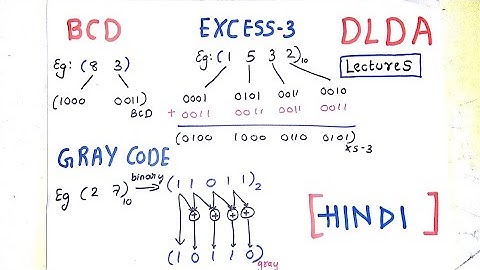 BCD
Eg: (8 3)
(1000 0011)
BCD
EXCESS-3
Eg: (1 5 3 2)10
0001 0101 0011 0010
+ 0011 0011 0011 0011
(0100 1000 0110 0101)XS-3
DLDA
Lecture 5
GRAY CODE
Eg (2 7)10 binary → (1 1 0 1 1)2
+ + + +
(1 0 1 1 0)gray
[HINDI]